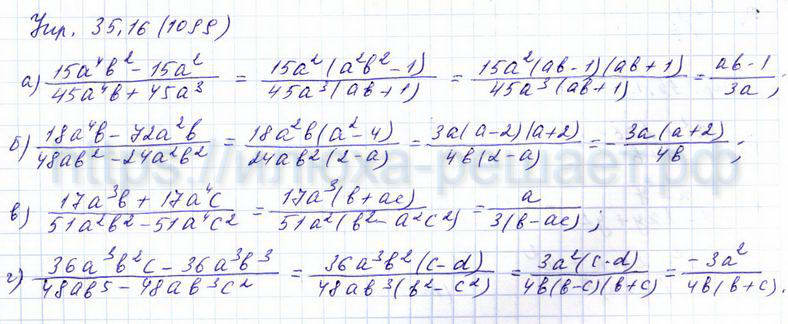 Упр. 35.16 (1099)
а) (15a⁴b² - 15a²)/(45a⁴b + 45a³) = 15a²(a²b² - 1)/45a³(ab + 1) = 15a²(ab - 1)(ab + 1)/45a³(ab + 1) = (ab - 1)/3a ;
б) (18a⁴b - 72a²b)/(48ab² - 24a²b²) = 18a²b(a² - 4)/24ab²(2 - a) = 3a(a - 2)(a + 2)/4b(2 - a) = - 3a(a + 2)/4b ;
в) (17a³b + 17a⁴c)/(51a²b² - 51a⁴c²) = 17a³(b + ac)/51a²(b² - a²c²) = a/3(b - ac) ;
г) (36a³b²c - 36a³b³)/(48ab5 - 48ab³c²) = 36a³b²(c - d)/48ab³(b² - c²) = 3a²(c - d)/4b(b - c)(b + c) = -3a²/4b(b + c) .
https://инеха-решает.рф